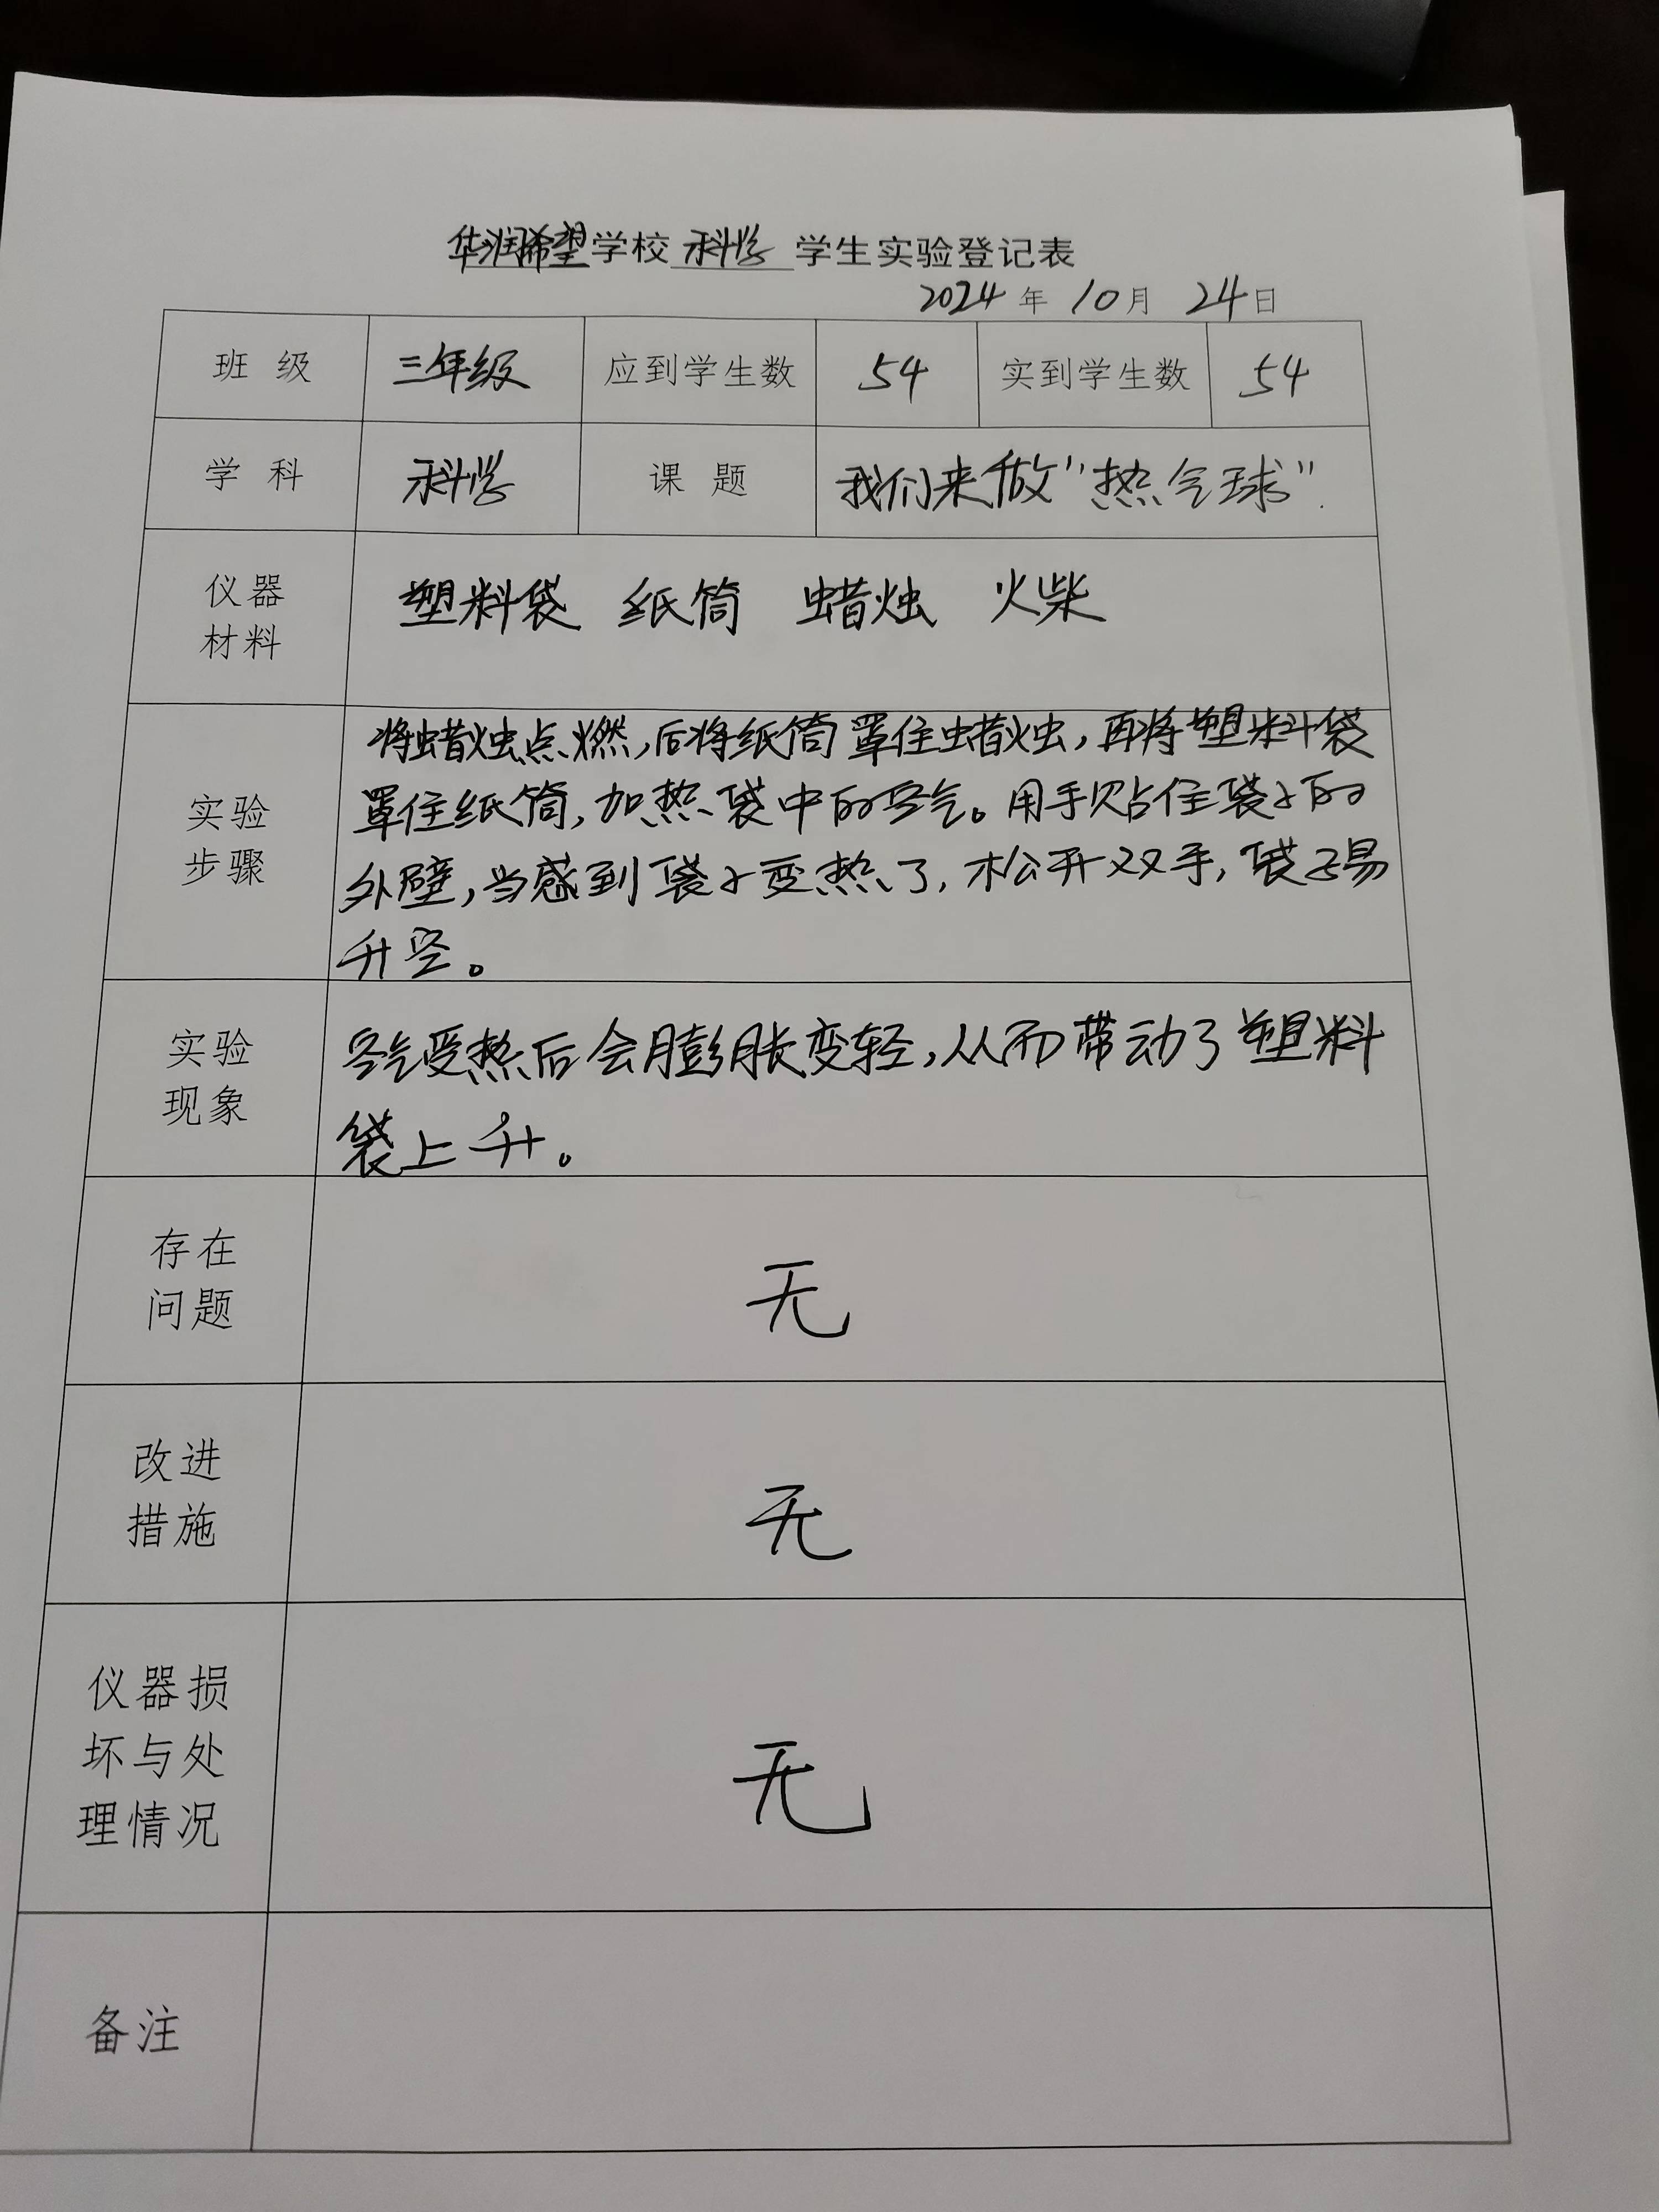 华润希望学校 科学 学生实验登记表
2024 年 10 月 24 日
班 级 三年级 应到学生数 54 实到学生数 54
学 科 科学 课 题 我们来做“热气球”.
仪器
材料
塑料袋 纸筒 蜡烛 火柴
实验
步骤
将蜡烛点燃,后将纸筒罩住蜡烛,再将塑料袋
罩住纸筒,加热袋中的空气。用手贴住袋子的
外壁,当感到袋子变热了,松开双手,袋子易
升空。
实验
现象
空气受热后会膨胀变轻,从而带动了塑料
袋上升。
存在
问题
无
改进
措施
无
仪器损
坏与处
理情况
无
备注